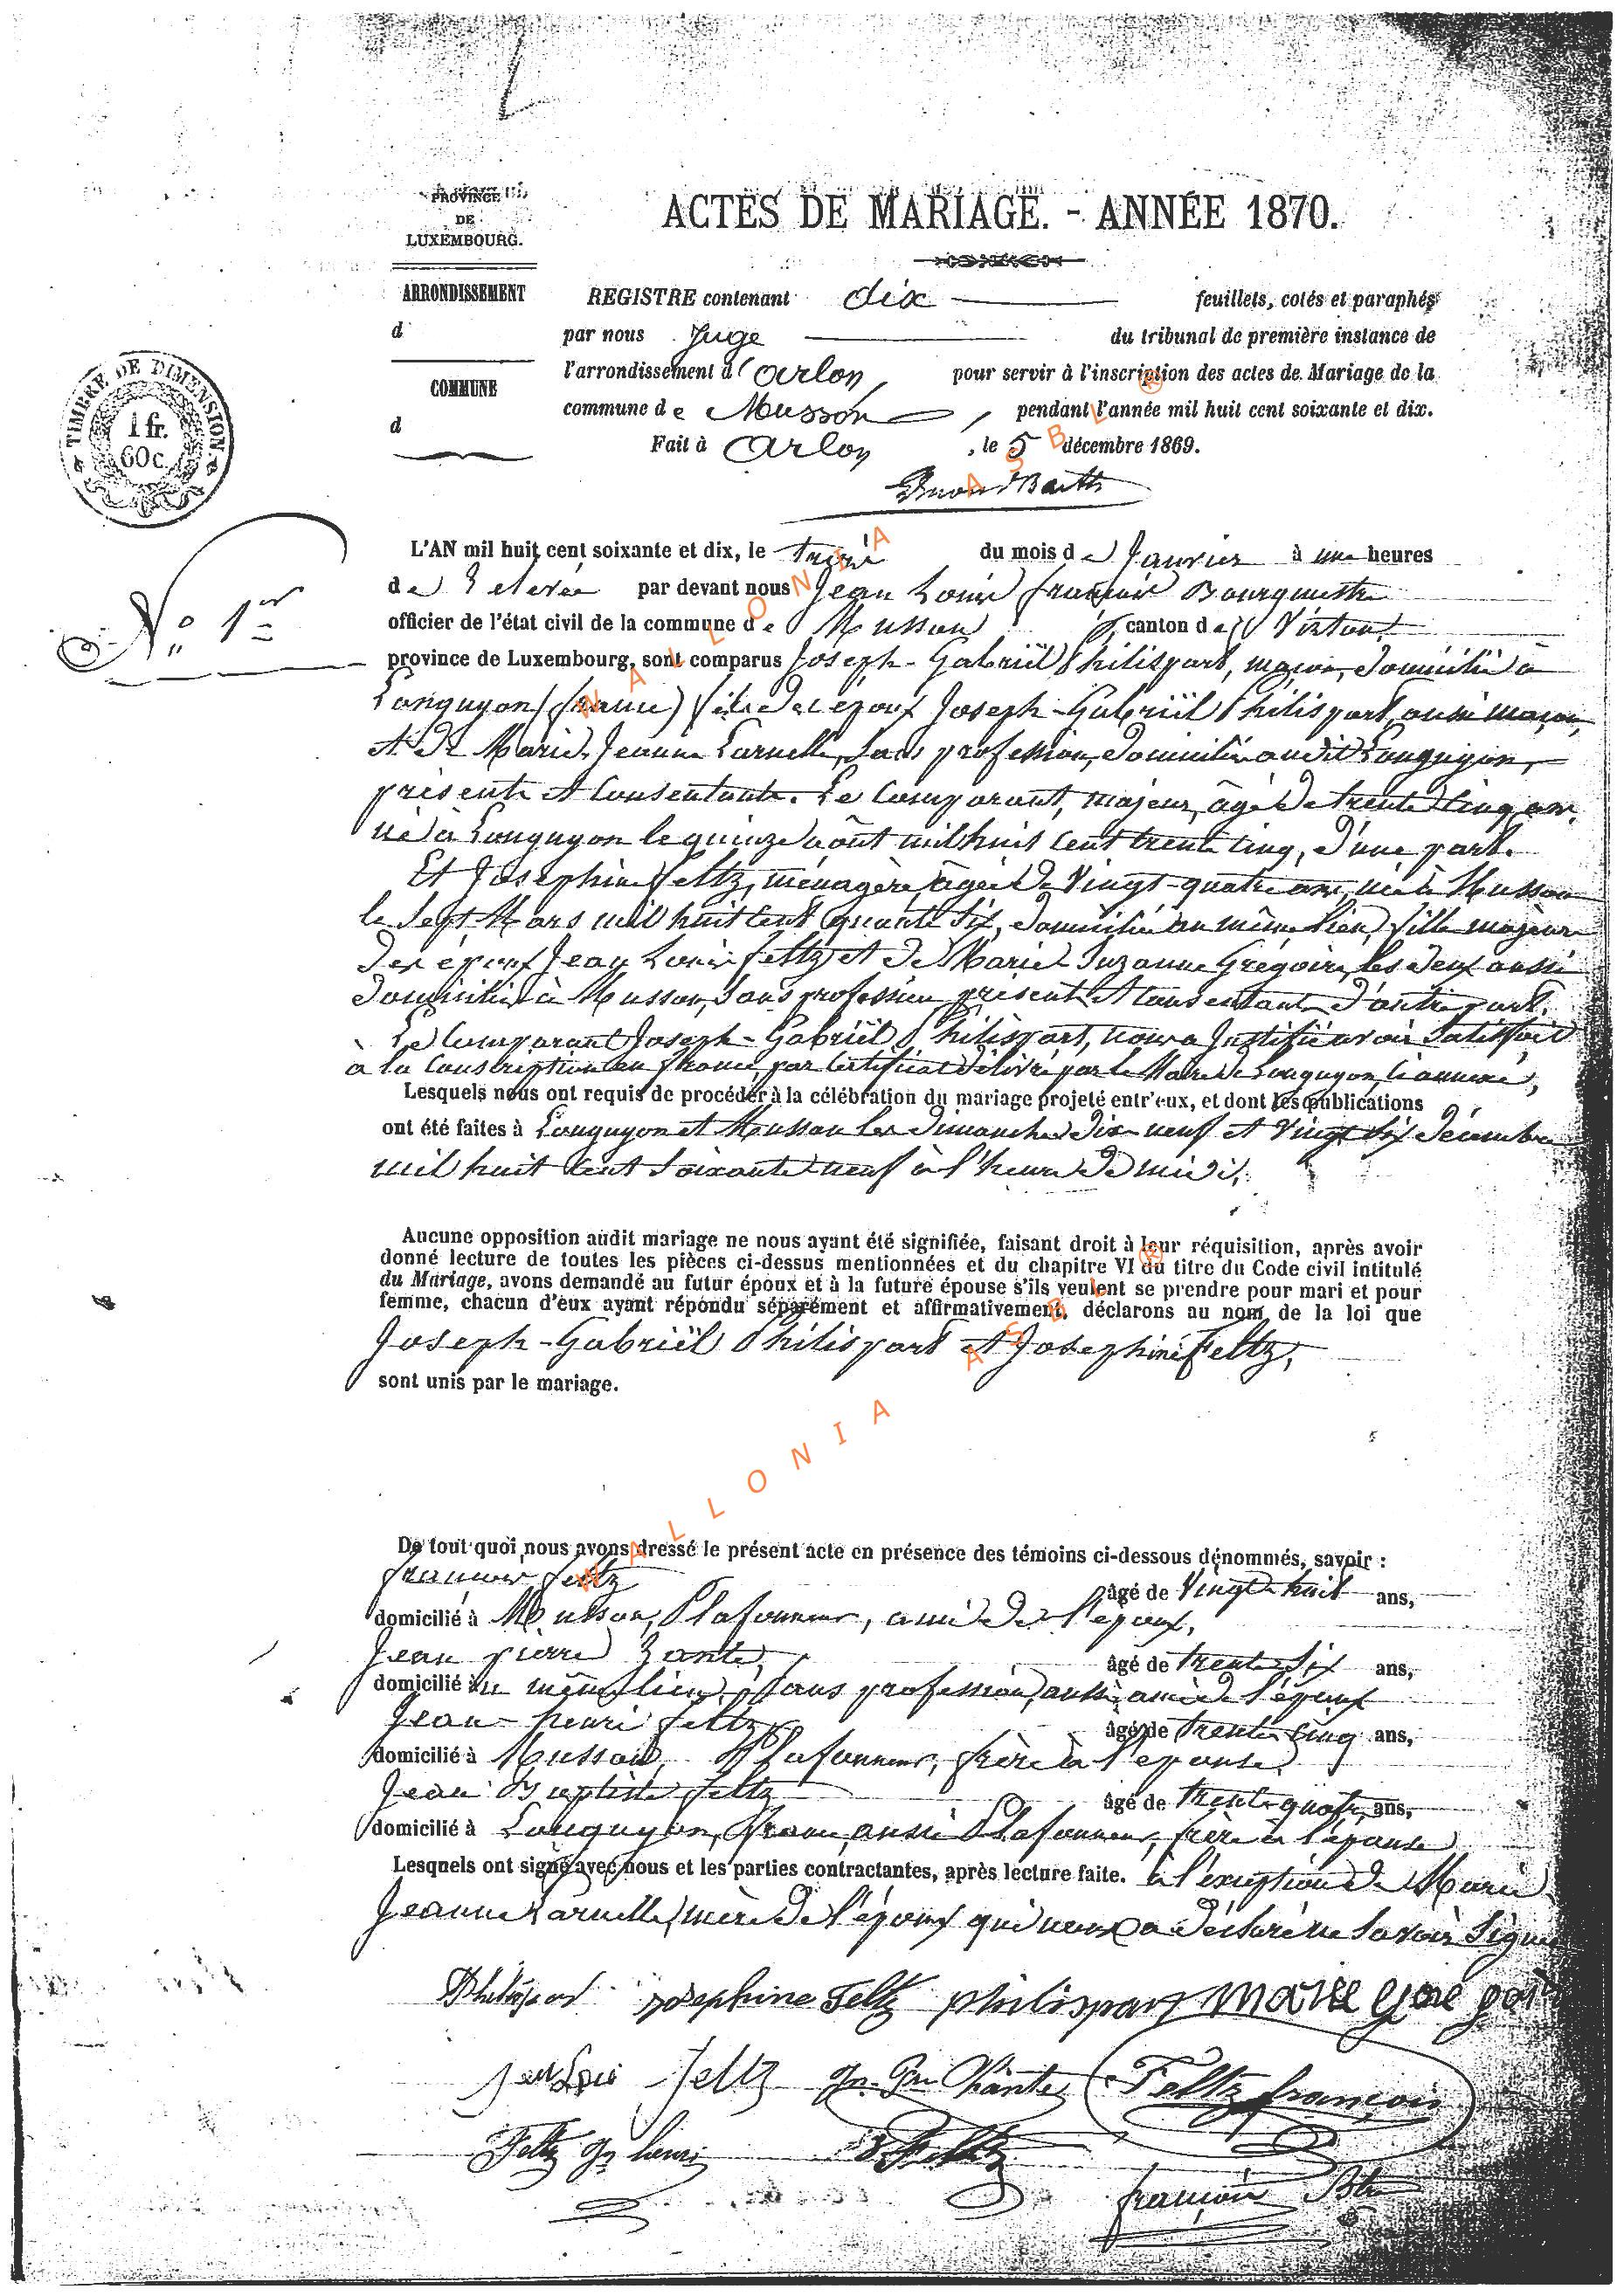 PROVINCE
DE
LUXEMBOURG.
ACTES DE MARIAGE. - ANNÉE 1870.
ARRONDISSEMENT
d
COMMUNE
d
TIMBRE DE DIMENSION
1 fr.
60 c.
REGISTRE contenant dix feuillets, cotés et paraphés
par nous Juge du tribunal de première instance de
l'arrondissement d'Arlon, pour servir à l'inscription des actes de Mariage de la
commune de Musson, pendant l'année mil huit cent soixante et dix.
Fait à Arlon, le 5 décembre 1869.
N° 1er
L'AN mil huit cent soixante et dix, le du mois de Janvier à une heures
de relevée par devant nous Jean Louis françois Bourgmestre
officier de l'état civil de la commune de Musson, canton de Virton,
province de Luxembourg, sont comparus Joseph-Gabriël Philispart, maçon, domicilié à
Longuyon (france) fils des époux Joseph-Gabriël Philispart, aussi maçon,
et de Marie Jeanne Larnelle, sans profession, domiciliés audit Longuyon,
présents et consentants. Le comparant, majeur, âgé de trente cinq ans,
né à Longuyon le quinze août mil huit cent trente cinq, d'une part.
Et Josephine feltz, ménagère, âgée de vingt-quatre ans, née à Musson
le sept Mars mil huit cent quarante six, domiciliée au même lieu, fille majeure
des époux Jean Louis feltz et de Marie Suzanne Grégoire, les deux aussi
domiciliés à Musson, sans profession, présents et consentants d'autre part.
Le comparant Joseph-Gabriël Philispart, nous a justifié avoir satisfait
à la conscription en france, par certificat délivré par le Maire de Longuyon, ci annexé,
Lesquels nous ont requis de procéder à la célébration du mariage projeté entr'eux, et dont les publications
ont été faites à Longuyon et Musson les dimanches dix neuf et vingt six décembre
mil huit cent soixante neuf à l'heure de midi.
Aucune opposition audit mariage ne nous ayant été signifiée, faisant droit à leur réquisition, après avoir
donné lecture de toutes les pièces ci-dessus mentionnées et du chapitre VI du titre du Code civil intitulé
du Mariage, avons demandé au futur époux et à la future épouse s'ils veulent se prendre pour mari et pour
femme, chacun d'eux ayant répondu séparément et affirmativement, déclarons au nom de la loi que
Joseph-Gabriël Philispart et Josephine Feltz,
sont unis par le mariage.
De tout quoi nous avons dressé le présent acte en présence des témoins ci-dessous dénommés, savoir :
françois feltz âgé de vingt huit ans,
domicilié à Musson, Plafonneur, ami de l'époux,
Jean pierre Zante, âgé de trente six ans,
domicilié au même lieu, sans profession, aussi ami de l'époux
Jean-henri feltz âgé de trente cinq ans,
domicilié à Musson, Plafonneur, frère à l'épouse
Jean Baptiste feltz âgé de trente quatre ans,
domicilié à Longuyon, france, aussi Plafonneur, frère à l'épouse
Lesquels ont signé avec nous et les parties contractantes, après lecture faite. à l'exception de Marie
Jeanne Larnelle, mère de l'époux qui nous a déclaré ne savoir signer
Philispart josephine Feltz philispart marie
Jean Louis Feltz Feltz françois
Feltz Jn henri Feltz
françois
WALLONIA ASBL ®
WALLONIA ASBL ®